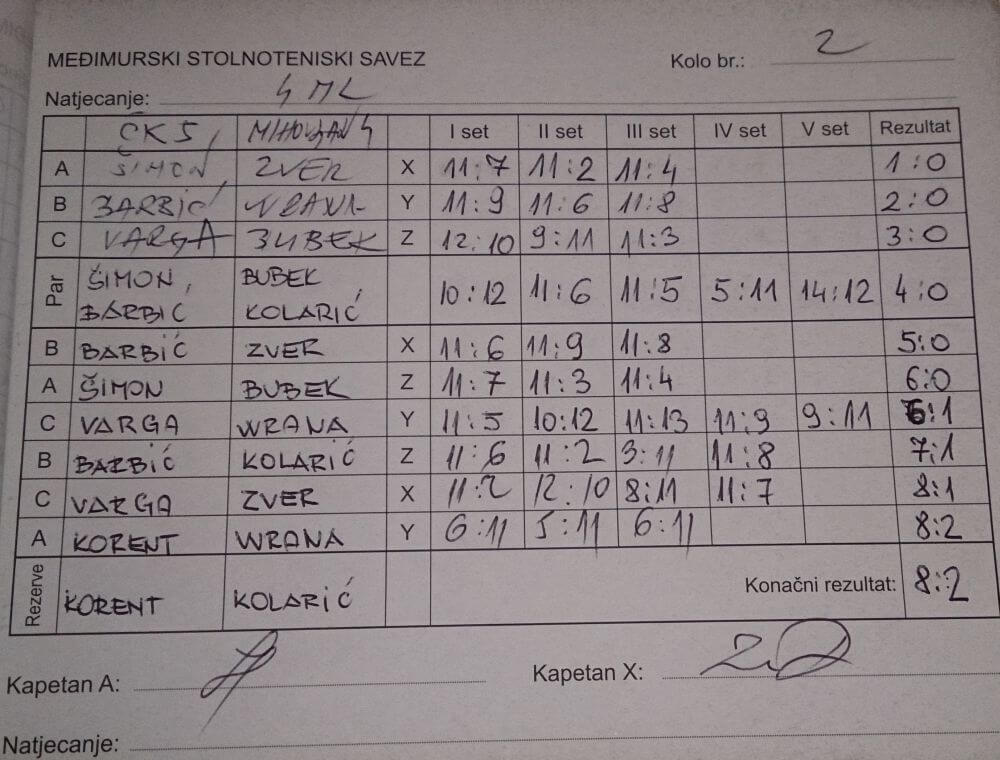 MEĐIMURSKI STOLNOTENISKI SAVEZ Kolo br.: 2
Natjecanje: 4 ML
ČK 5, MIHOVLJAN 4 I set II set III set IV set V set Rezultat
A ŠIMON, ZVER X 11:7 11:2 11:4 1:0
B BARBIĆ WRANA Y 11:9 11:6 11:8 2:0
C VARGA BUBEK Z 12:10 9:11 11:3 3:0
Par ŠIMON, BUBEK,
BARBIĆ KOLARIĆ 10:12 11:6 11:5 5:11 14:12 4:0
B BARBIĆ ZVER X 11:6 11:9 11:8 5:0
A ŠIMON BUBEK Z 11:7 11:3 11:4 6:0
C VARGA WRANA Y 11:5 10:12 11:13 11:9 9:11 6:1
B BARBIĆ KOLARIĆ Z 11:6 11:2 3:11 11:8 7:1
C VARGA ZVER X 11:2 12:10 8:11 11:7 8:1
A KORENT WRANA Y 6:11 5:11 6:11 8:2
Rezerve KORENT KOLARIĆ Konačni rezultat: 8:2
Kapetan A: Kapetan X:
Natjecanje: